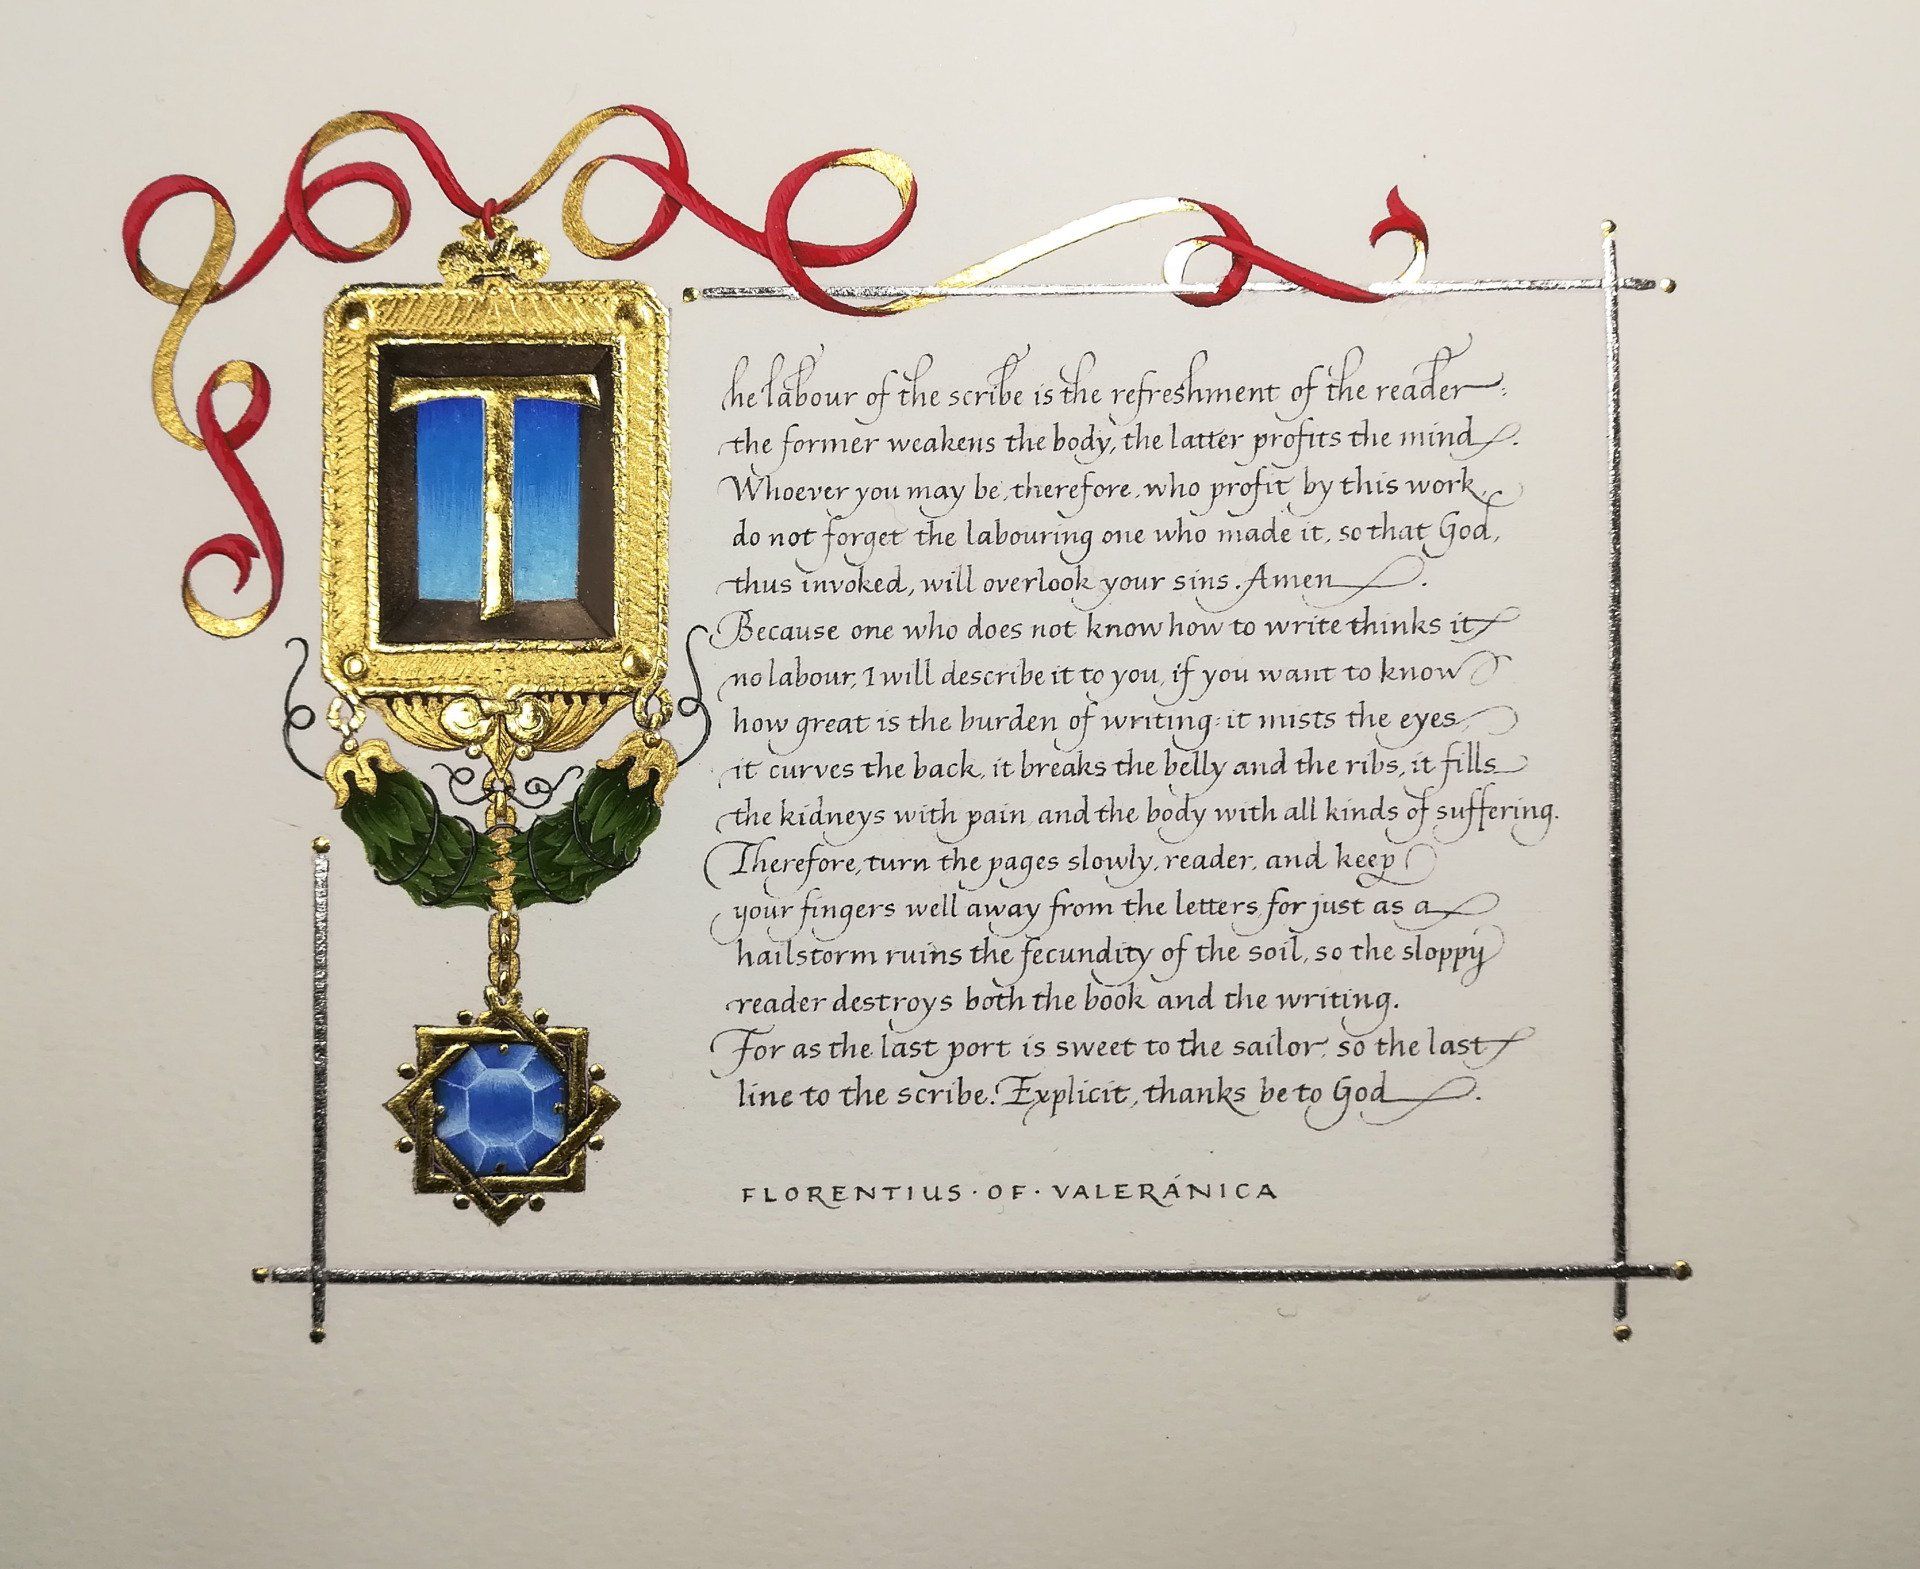 The labour of the scribe is the refreshment of the reader:
the former weakens the body, the latter profits the mind.
Whoever you may be, therefore, who profit by this work,
do not forget the labouring one who made it, so that God,
thus invoked, will overlook your sins. Amen.
Because one who does not know how to write thinks it
no labour, I will describe it to you, if you want to know
how great is the burden of writing: it mists the eyes,
it curves the back, it breaks the belly and the ribs, it fills
the kidneys with pain and the body with all kinds of suffering.
Therefore, turn the pages slowly, reader, and keep
your fingers well away from the letters, for just as a
hailstorm ruins the fecundity of the soil, so the sloppy
reader destroys both the book and the writing.
For as the last port is sweet to the sailor, so the last
line to the scribe. Explicit, thanks be to God.
FLORENTIUS · OF · VALERÁNICA